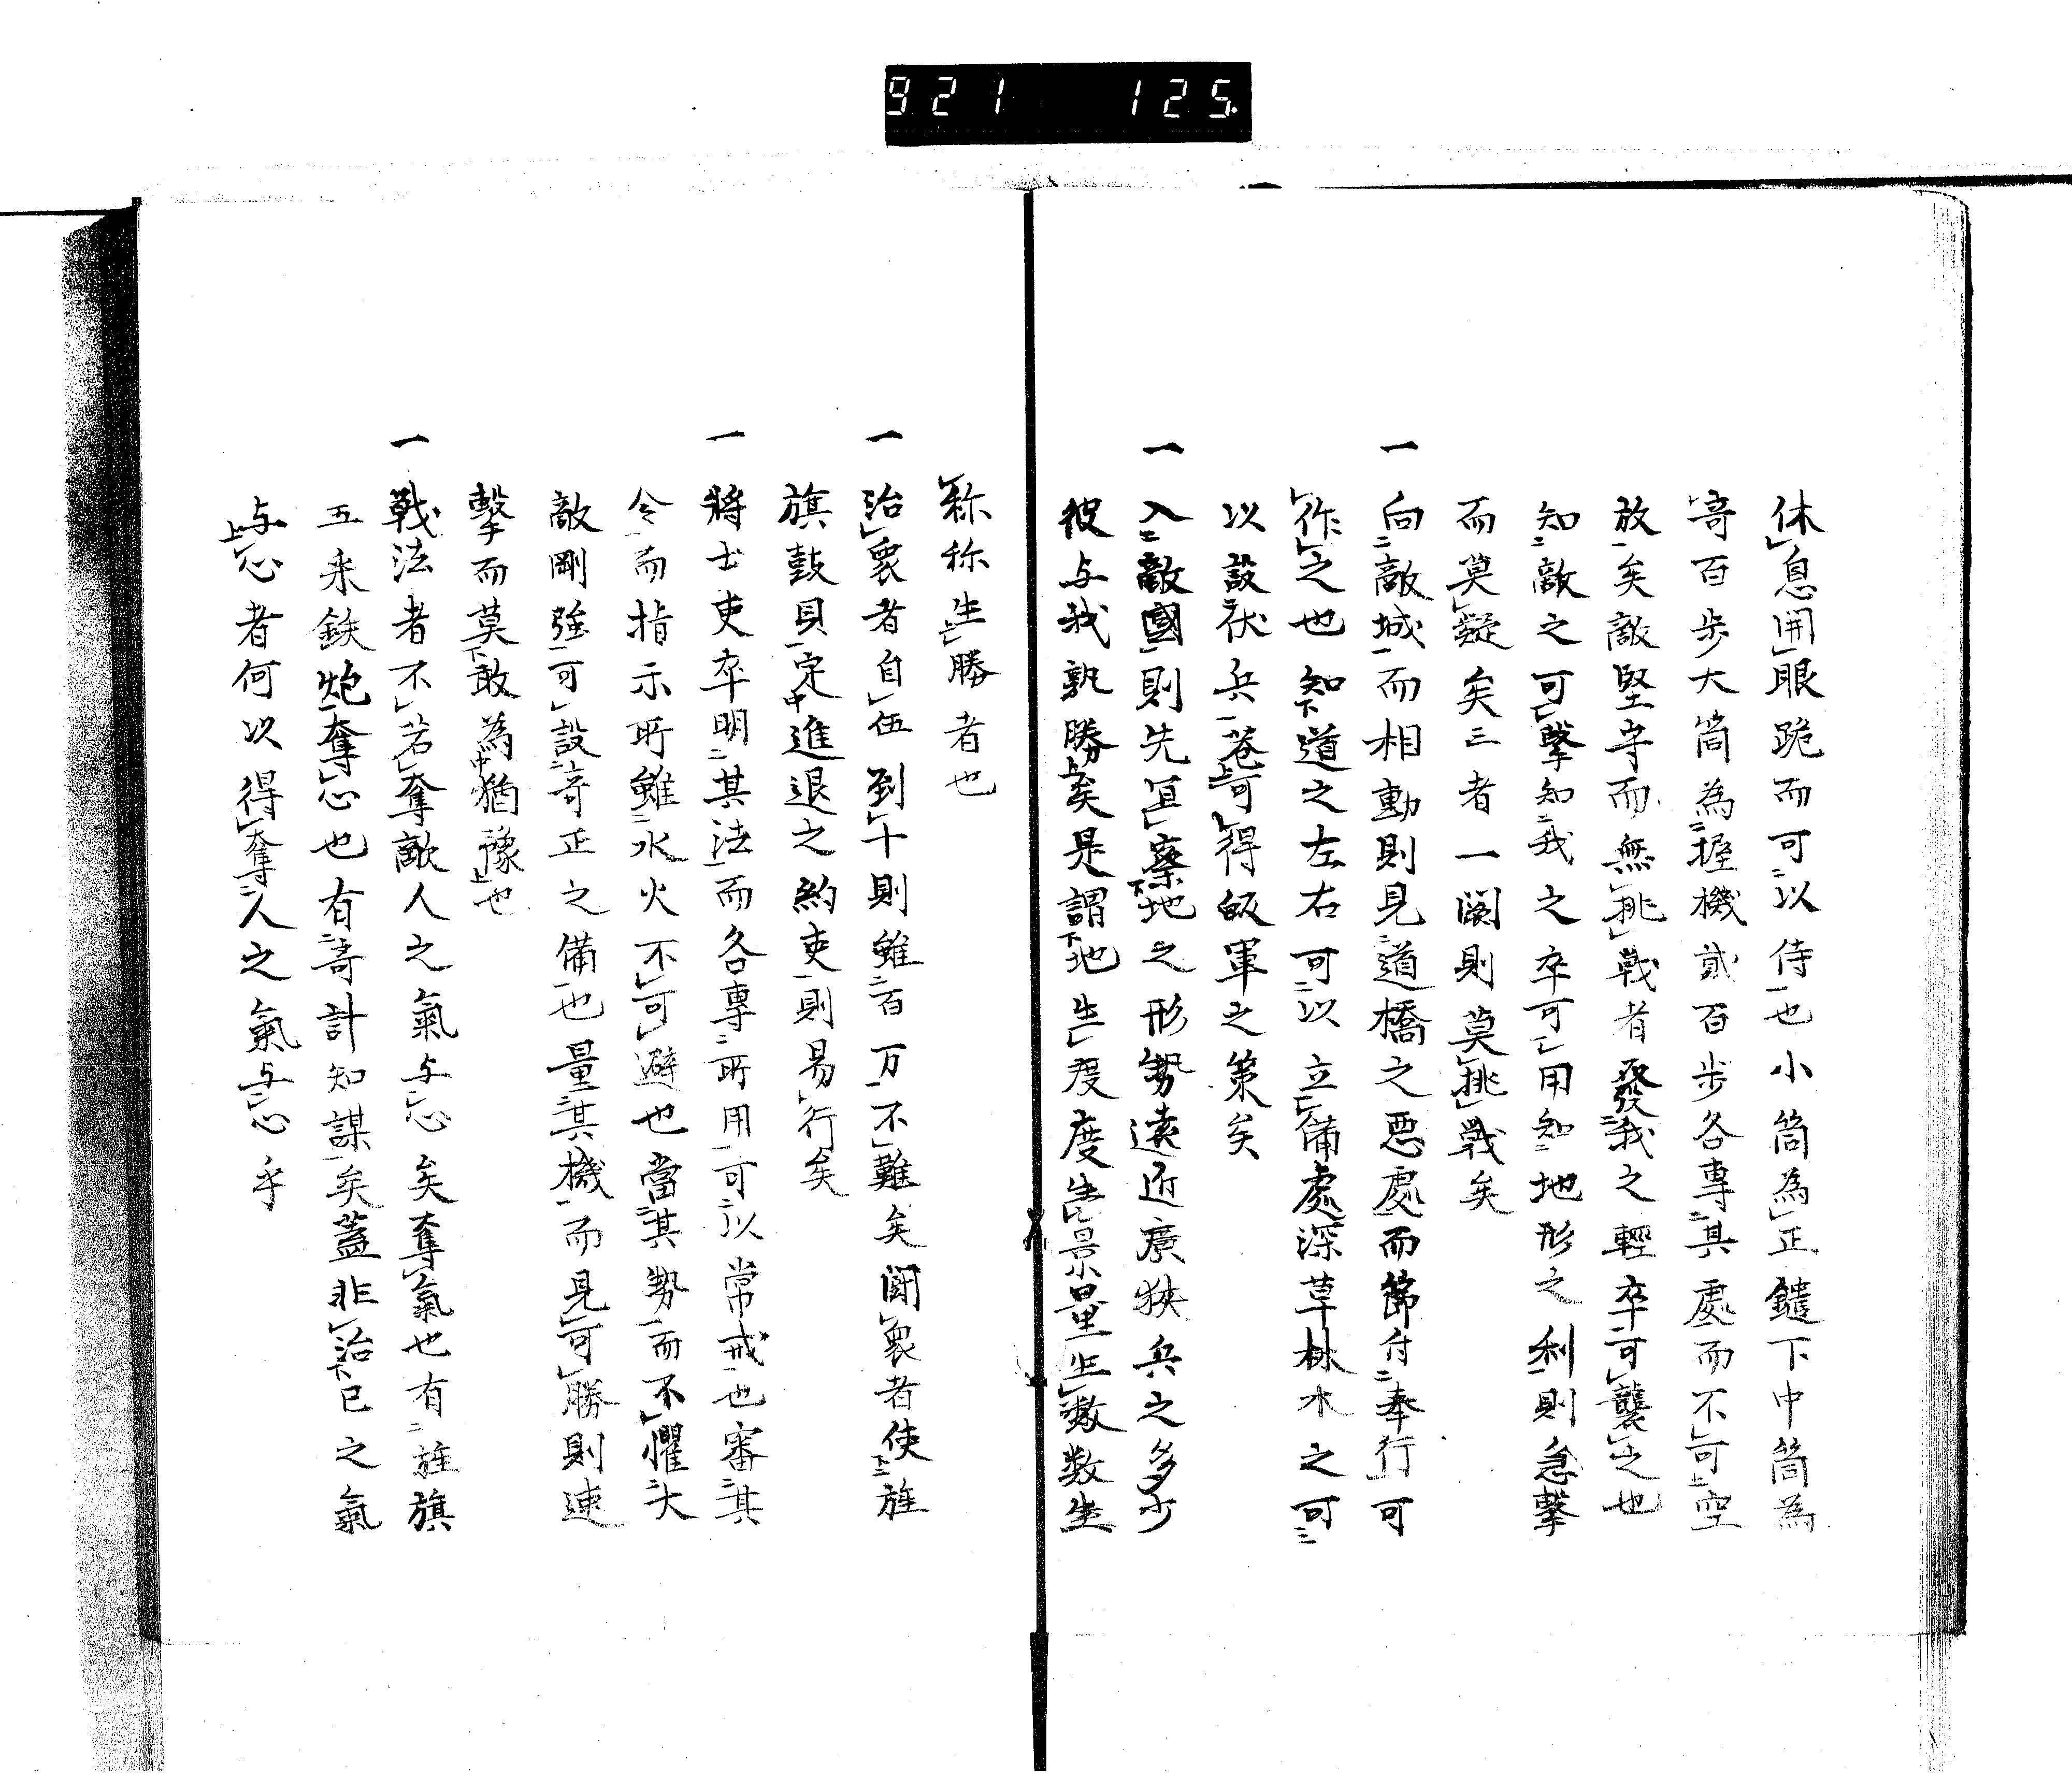 921 125
休息開眼跪而可以侍也小筒為正鑓下中筒為
竒百歩大筒為握機貳百歩各専其處而不可空
放矣敵堅守而無挑戦者發我之輕卒可襲之也
知敵之可撃知我之卒可用知地形之利則急撃
而莫疑矣三者一闕則莫挑戦矣
一向敵城而相動則見道橋之悪處而節付奉行可
作之也知道之左右可以立備處深草林水之可
以設伏兵菴可得敀軍之策矣
一入敵國則先宜察地之形勢遠近廣狭兵之多少
彼与我孰勝矣是謂地生度度生量量生数数生
称称生勝者也
一治衆者自伍到十則雖百万不難矣闘衆者使旌
旗鼓貝定進退之約吏則易行矣
一将士吏卒明其法而各専所用可以常戒也審其
令而指示所雖水火不可避也當其勢而不懼大
敵剛強可設竒正之備也量其機而見可勝則速
撃而莫敢為猶豫也
一戦法者不若奪敵人之氣与心矣奪氣也有旌旗
五釆鉄炮奪心也有竒計知謀矣蓋非治己之氣
与心者何以得奪人之氣与心乎